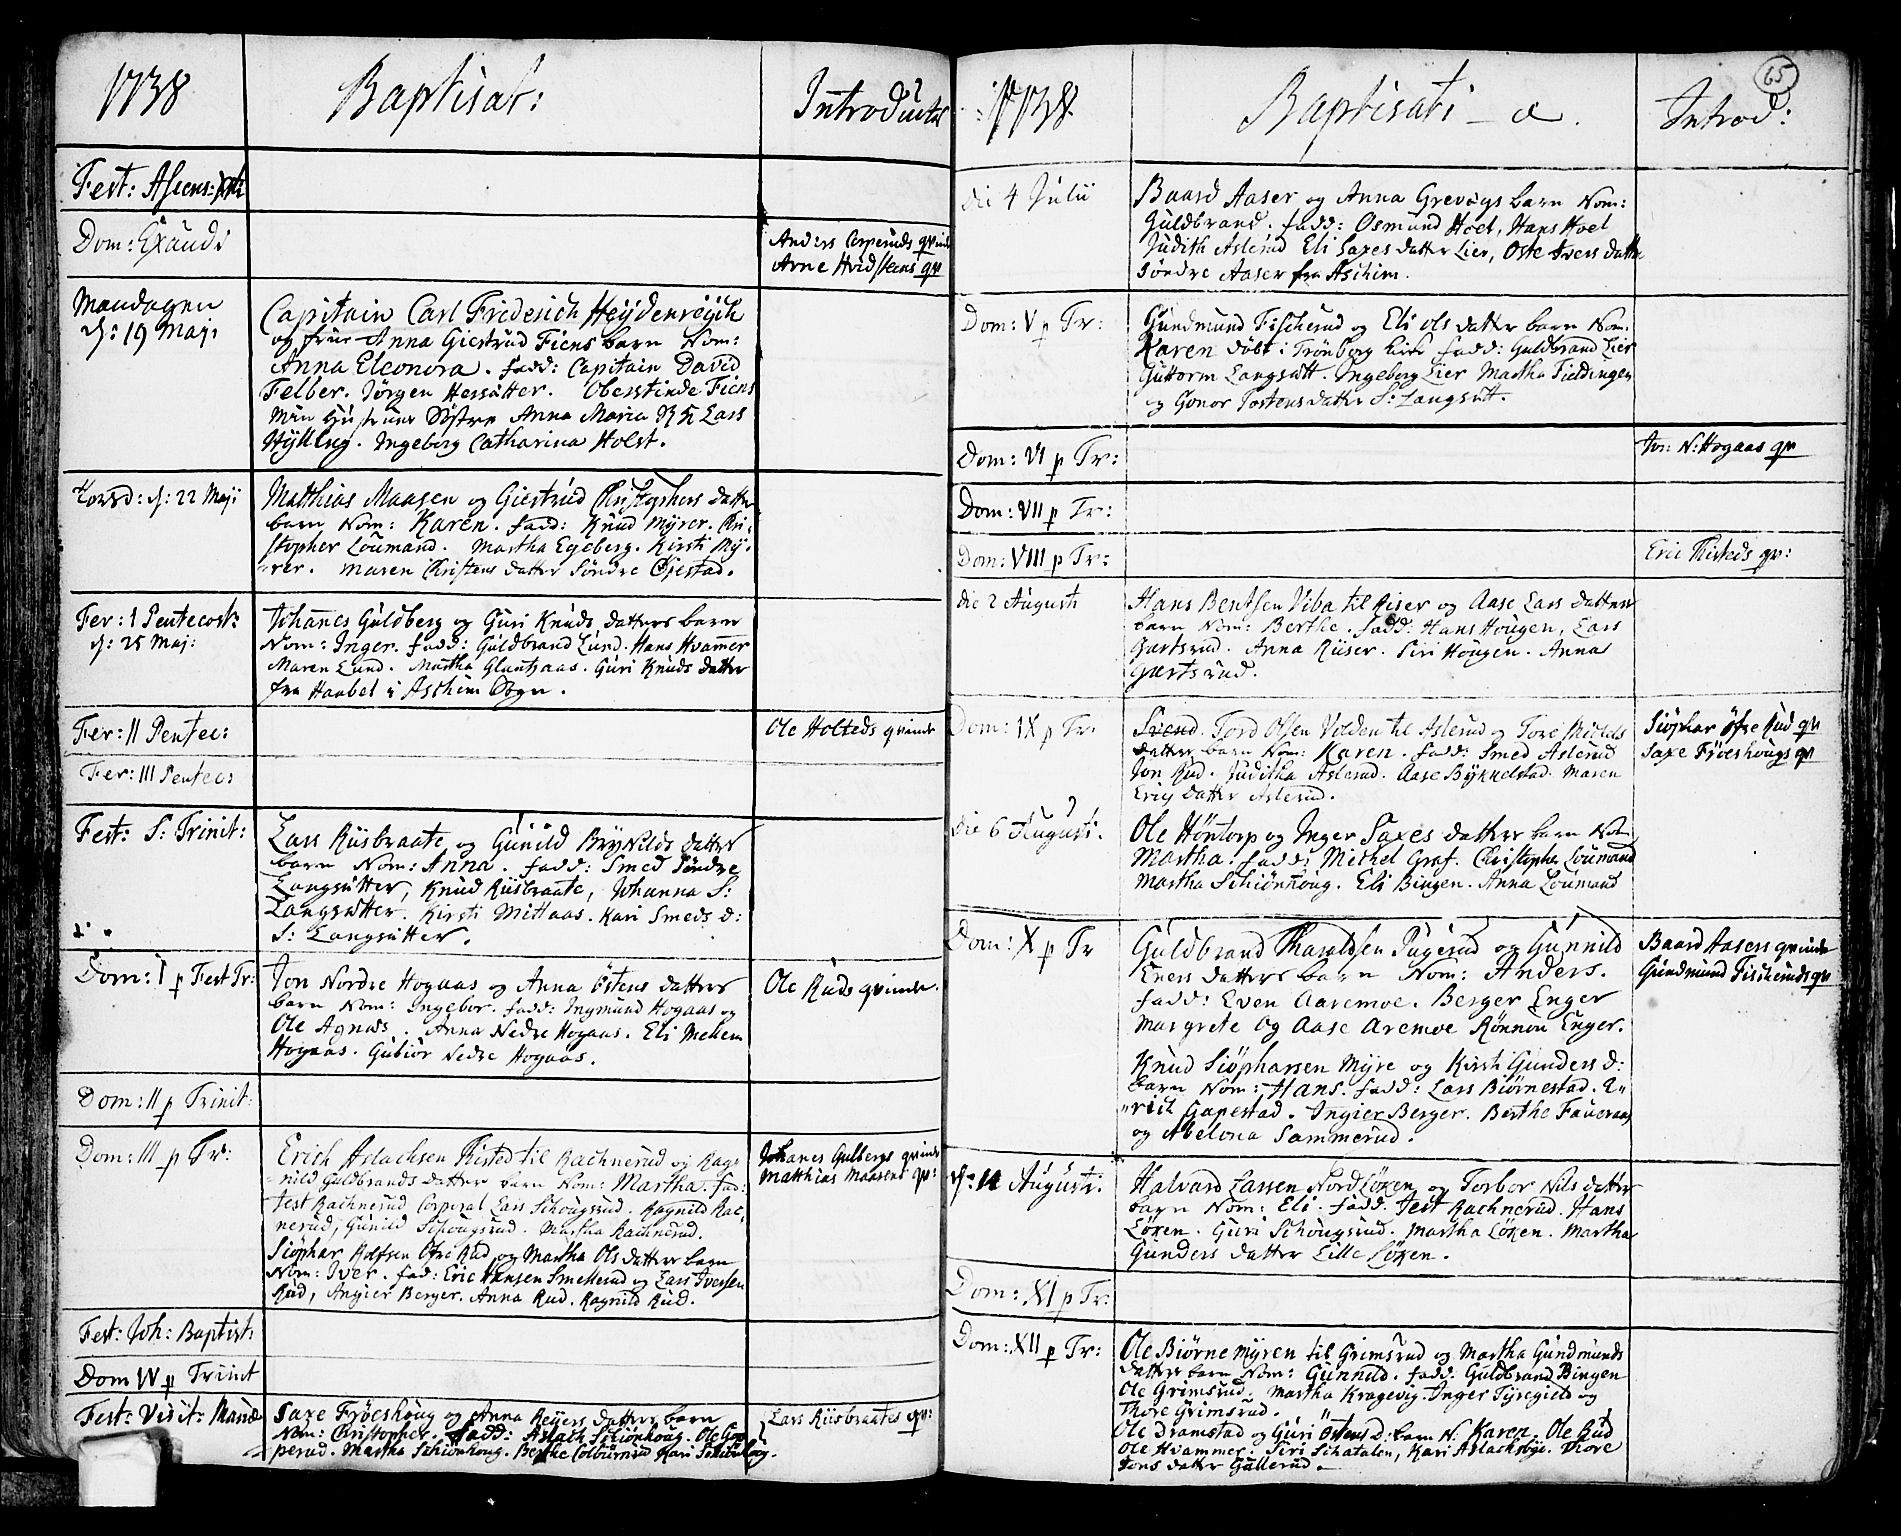 1738
Baptisat:
Introductæ
Fest: Ascens:
Dom: Exaudi
Anders Corperuds qvinde
Arne Hvidsteens qv
Mandagen
d: 19 Maji
Capitain Carl Friderich Heijdenreijch
og frue Anna Giertrud Fiens barn Nom:
Anna Eleonora. fadd: Capitain David
Felber. Jørgen Hessætter. Oberstinde Fiens
Min Hustrues Søster Anna Maria Lars
Hÿlling. Ingeborg Catharina Holst.
Torsd: d: 22 Maji
Matthias Maasen og Giertrud Christophers datter
barn Nom: Karen. fadd: Knud Myrer. Chri-
stopher Loumand. Martha Egeberg. Kirsti My-
rer. Maren Christens datter Søndre Gjestad.
Fer: I Pentecost:
d: 25 Maj:
Johannes Guldberg og Guri Knuds datters barn
Nom: Inger. fadd: Guldbrand Lund. Hans Hvammer
Maren Lund. Martha Glautzaas. Guri Knuds datter
fra Haabel i Aschim Sogn.
Fer: II Pentec:
Ole Holteds qvinde
Fer: III Pentec:
Fest: S: Trinit:
Lars Riisbraate og Gunild Brynilds datter
barn Nom: Anna. fadd: Smed Søndre
Langsætter, Knud Riisbraate, Johanna S:
Langsætter. Kirsti Mittaas. Kari Smeds d:
S: Langsætter.
Dom: I p Fest Tr:
Jon Nordre Hogaas og Anna Østens datter
barn Nom: Ingebor. fadd: Ingmund Hogaas og
Ole Agnæs. Anna Nedre Hogaas. Eli Mellem
Hogaas. Gubiør Nedre Hogaas.
Ole Ruds qvinde.
Dom: II p Trinit:
Dom: III p Tr:
Erich Aslachsen Risted til Rachnerud og Rag-
nild Guldbrands datter barn Nom: Martha. fad:
Test Rachnerud Corporal Lars Schougsrud. Ragnild Rac-
nerud, Gunild Schougsrud. Martha Rachnerud.
Johanes Gulbergs qvinde
Matthias Maasens qv:
Siøphar Rolfsen Øfre Rud og Martha Ols datter barn
Nom: Iver. fad: Eric Hansen Smellerud og Lars Iversen
Rud, Angier Berger. Anna Rud. Ragnild Rud.
Fest: Joh: Baptist:
Dom IV p Trinit
Fest: Visit: Mariæ
Saxe Frøeshoug og Anna Reyers datter barn
Nom: Christopher. fadd: Aslach Schiønhoug. Ole Gop-
perud. Martha Schiønhoug. Berthe Colburnrud Kari Schiønhoug.
Lars Riisbraates qv:
65
1738
Baptisati - æ.
Introd:
die 4 Julii
Baard Aaser og Anna Grevogs barn Nom:
Guldbrand. fadd: Osmund Hoel, Hans Hoel
Judith Aslerud Eli Saxes datter Lier, Oste Ivers datter
Søndre Aaser fra Aschim.
Dom: V p Tr:
Gundmund Fischerud og Eli Ols datter barn Nom:
Karen døbt i Trønborg kirke fadd: Guldbrand Lier
Guttorm Langsætt. Ingeborg Lier Martha Fieldingen
og Gonor Tostens datter S: Langsætt.
Dom: VI p Tr:
Jon N: Hogaas qv
Dom: VII p Tr:
Dom: VIII p Tr:
Eric Risteds qv:
die 2 Augusti
Hans Bentsen Viba til Riser og Aase Lars datter
barn Nom: Berthe. fadd: Hans Hougen, Lars
Gartsrud. Anna Riiser. Siri Hougen. Anna
Gartsrud.
Dom: IX p Tr:
Svend Tord Olsen Volden til Aslerud og Tore Michels
datter barn Nom: Karen. fadd: Smed Aslerud
Jon Rud. Juditha Aslerud. Aase Bykkelstad. Maren
Erics datter Aslerud.
Siøphar Øfre Rud qv
Saxe Frøeshougs qv
die 6 Augusti.
Ole Høntorp og Inger Saxes datter barn Nom
Martha. fadd: Michel Graf. Christopher Loumand
Martha Schiønhoug. Eli Bingen. Anna Loumand
Dom: X p Tr
Guldbrand Haraldsen Tugerud og Gunnild
Eners datters barn Nom: Anders.
fadd: Even Aaremoe. Berger Enger
Margrete og Aase Aremoe Rønnou Enger.
Baard Aasers qvinde
Gundmund Fischeruds qv
Knud Siøpharsen Myre og Kirsti Gunders d:
barn Nom: Hans. fadd: Lars Biørnestad. E-
rich Gapestad. Ingier Berger. Berthe Faueraas
og Abelona Sammerud.
d: 11 Augusti.
Halvard Larsen Nord Løken og Torbor Nils datter
barn Nom: Eli. fadd: Test Rachnerud. Hans
Løken. Guri Schougsrud. Martha Løken. Martha
Gunders datter Lille Løken.
Dom: XI p Tr:
Dom: XII p Tr:
Ole Biørnemyren til Grimsrud og Martha Gundmunds
datter barn Nom: Gunnild. fadd: Guldbrand Bingen
Ole Grimsrud. Martha Kragevig. Inger Tyregield og
Thore Grimsrud.
Ole Dramstad og Guri Østens d. barn N. Karen. Ole Rud
Ole Hvammer. Siri Schatalen, Kari Aslacksbye. Thore
Jons datter Gullerud.